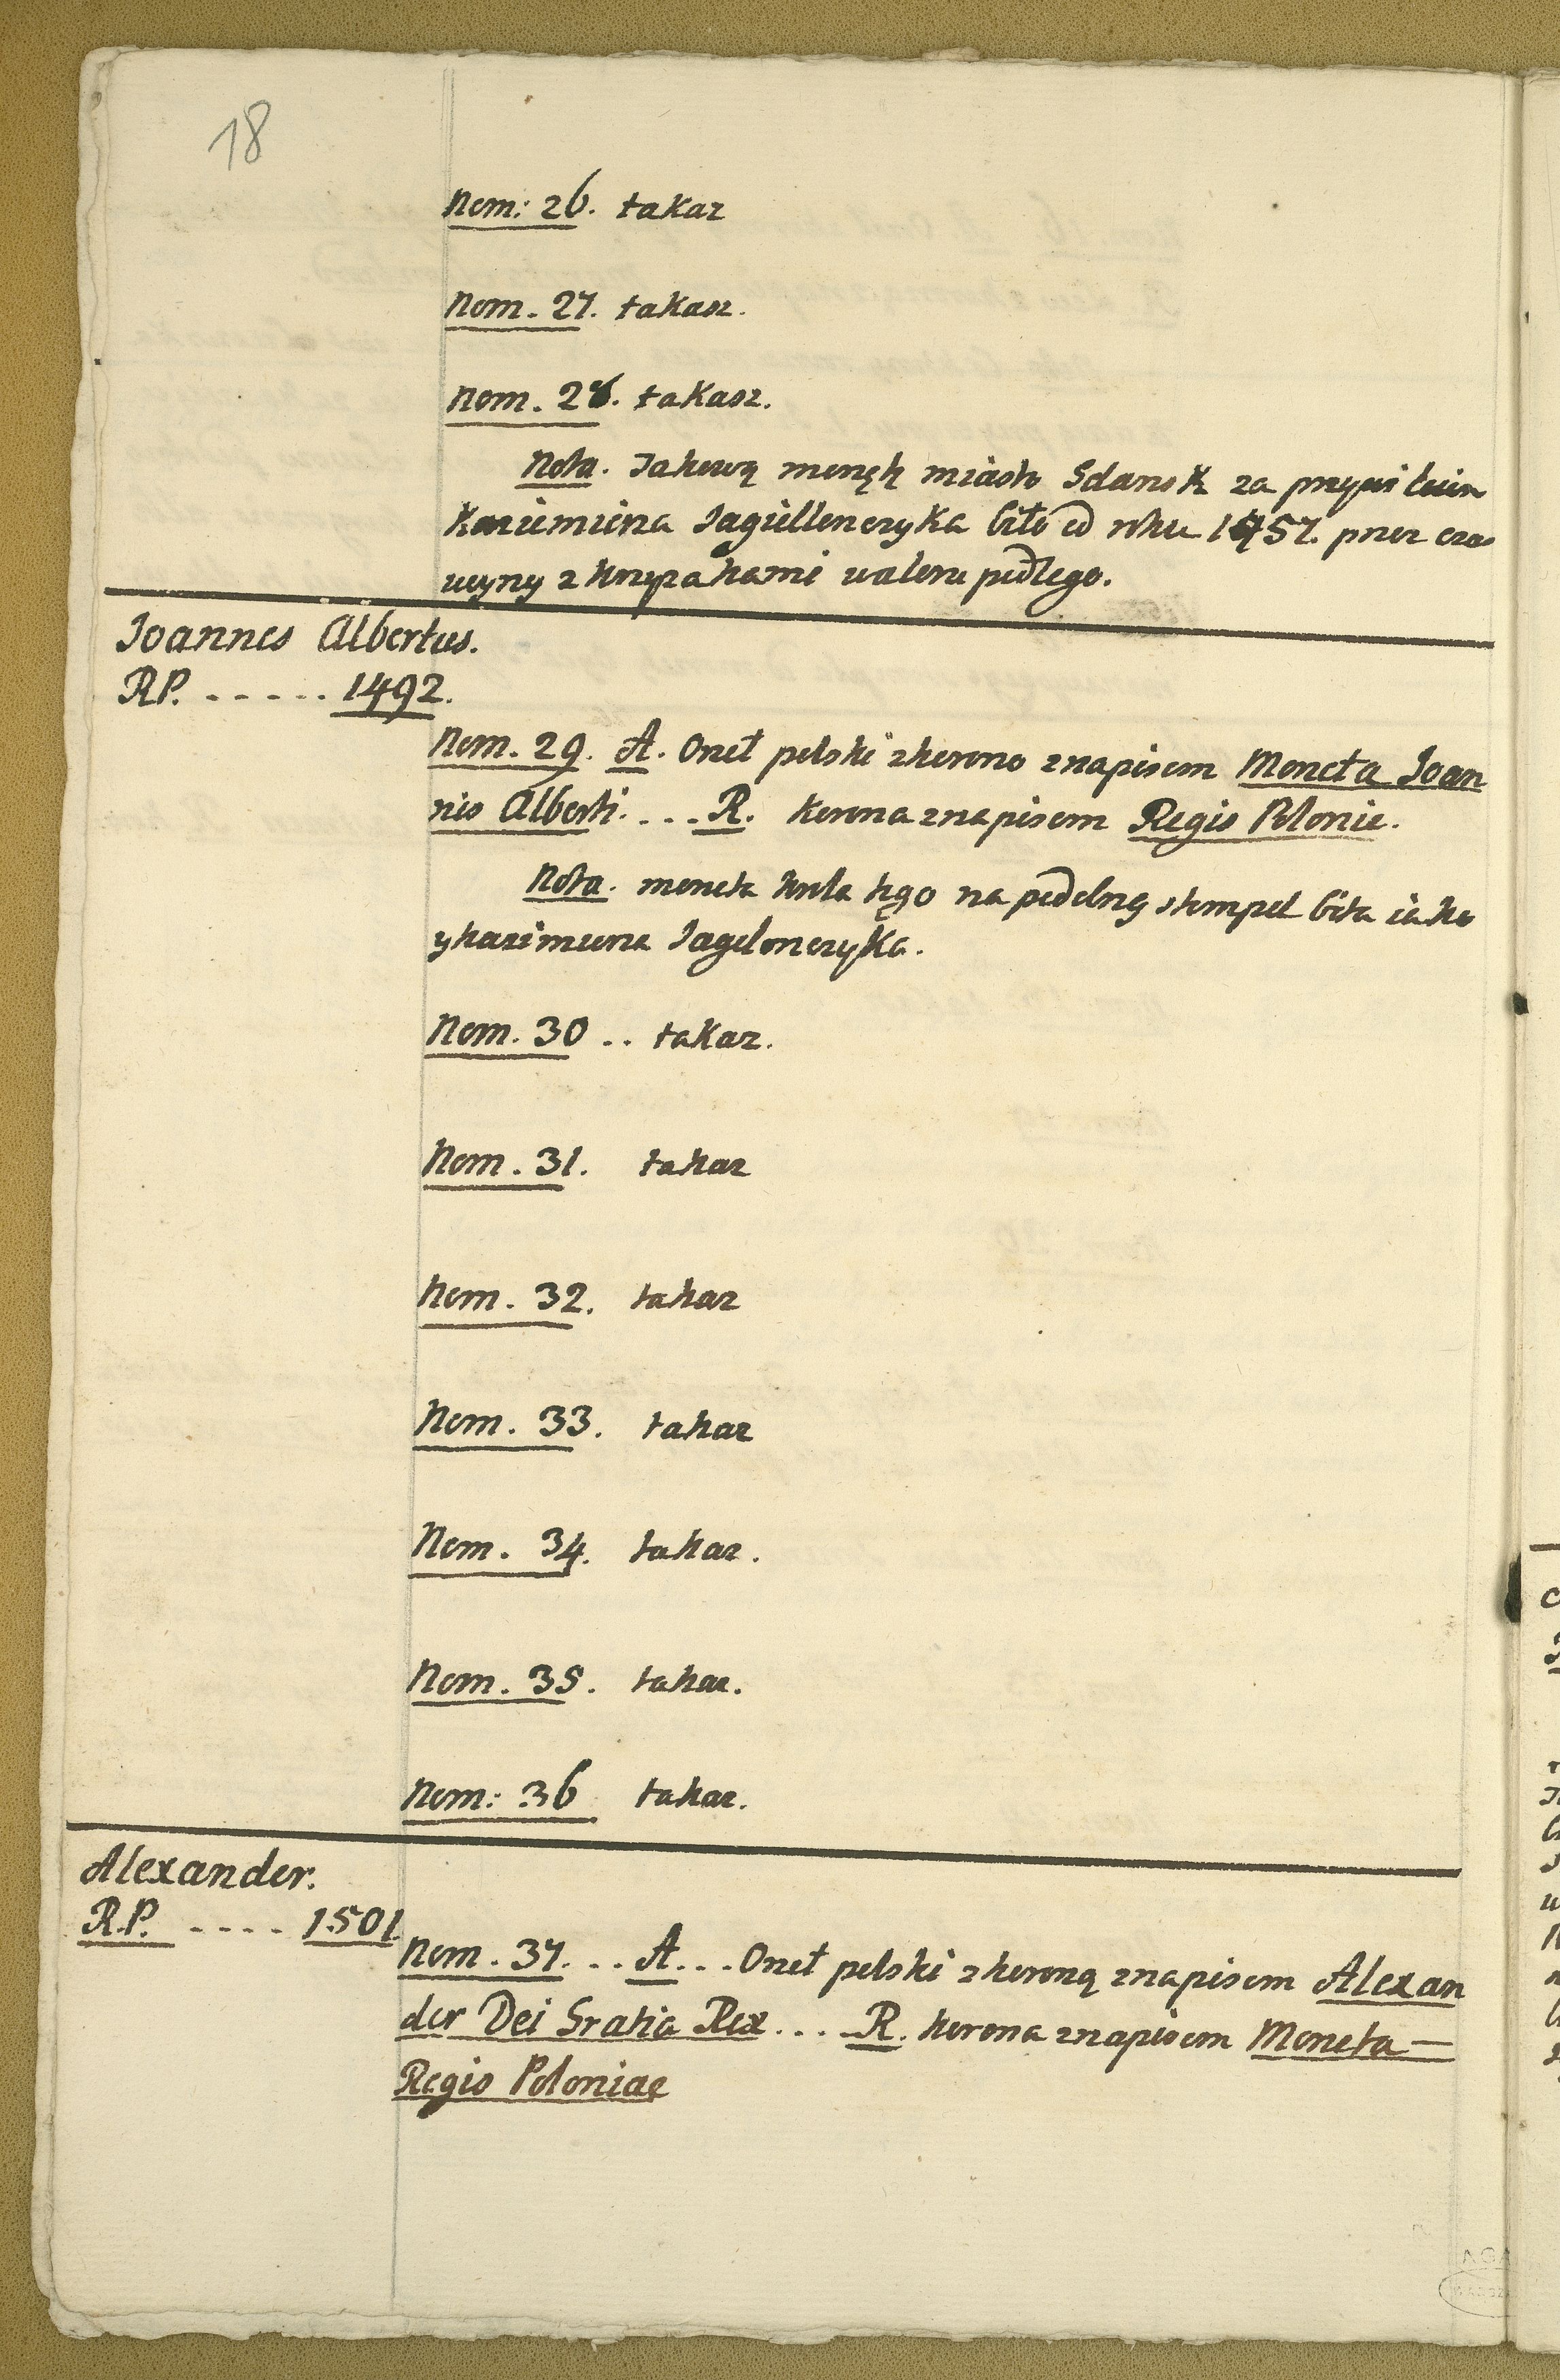 18
Nom: 26. takaz
Nom. 27. takasz.
Nom. 28. takasz.
Nota. Jakową monętę miasto Gdansk za przywileiem
Kazimierza Jagiellonczyka biło od roku 1457. przez czas
woyny z Krzyżakami waloru podłego.
Joannes Albertus.
RP. ..... 1492.
Nom. 29. A. Orzeł polski z korono z napisem Moneta Joan
nis Alberti. ... R. korona z napisem Regis Polonie.
Nota. moneta krola tego na podobny stempel bita iako
y kazimierza Jagelonczyka.
Nom. 30 .. takaz.
Nom. 31. takaz
Nom. 32. takaz
Nom. 33. takaz
Nom. 34. takaz.
Nom. 35. takaz.
Nom: 36 takaz.
Alexander.
R.P. .... 1501
Nom. 37. .. A... Orzeł polski z koroną z napisem Alexan
der Dei Gratia Rex ... R. korona z napisem Moneta —
Regis Poloniae